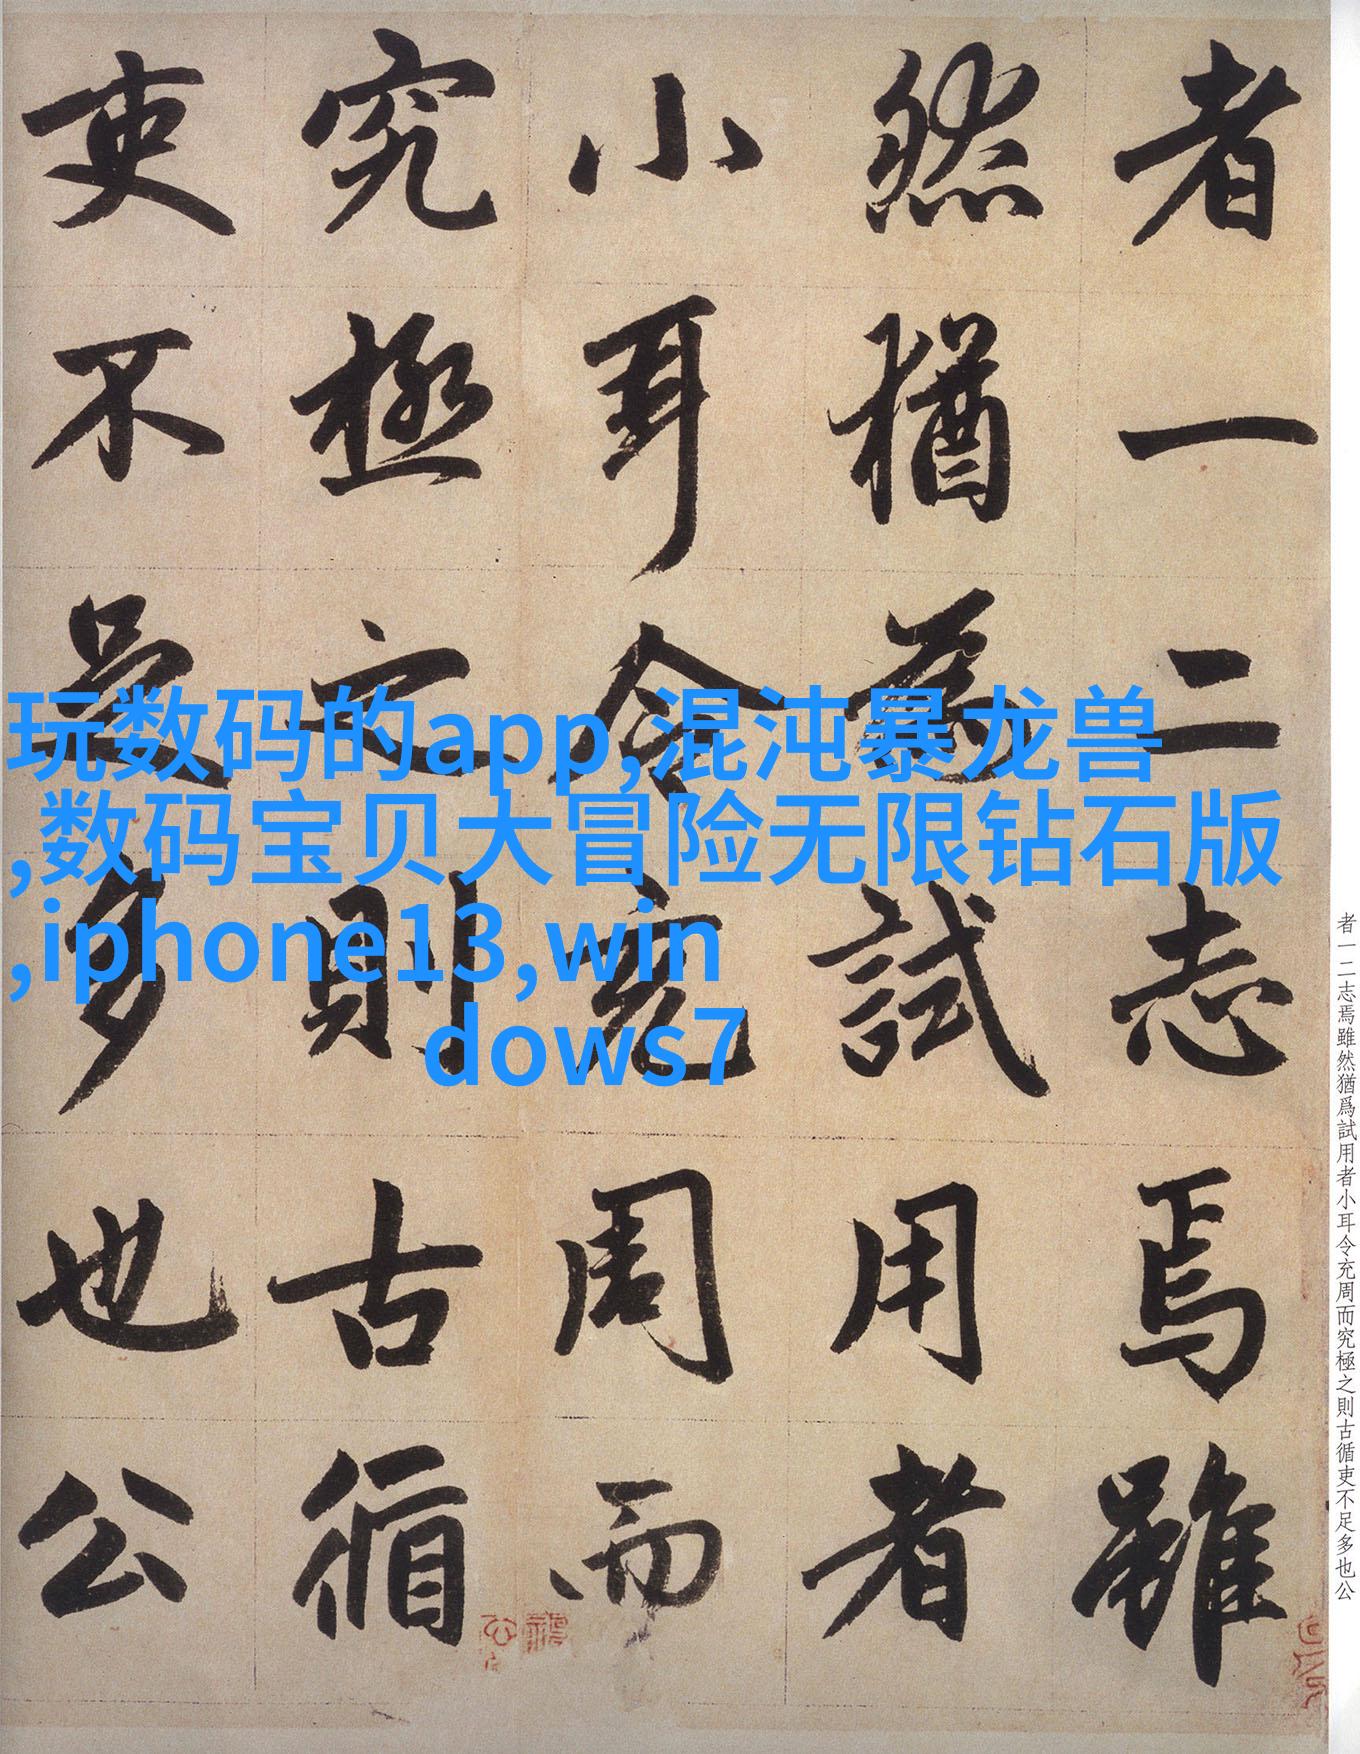 者一二志焉雖
然猶為試用者
小耳令充周而
究極之則古循
吏不足多也公
玩数码的app,混沌暴龙兽
,数码宝贝大冒险无限钻石版
,iphone13,win
dows7
者一二志焉雖然猶爲試用者小耳令充周而究極之則古循吏不足多也公